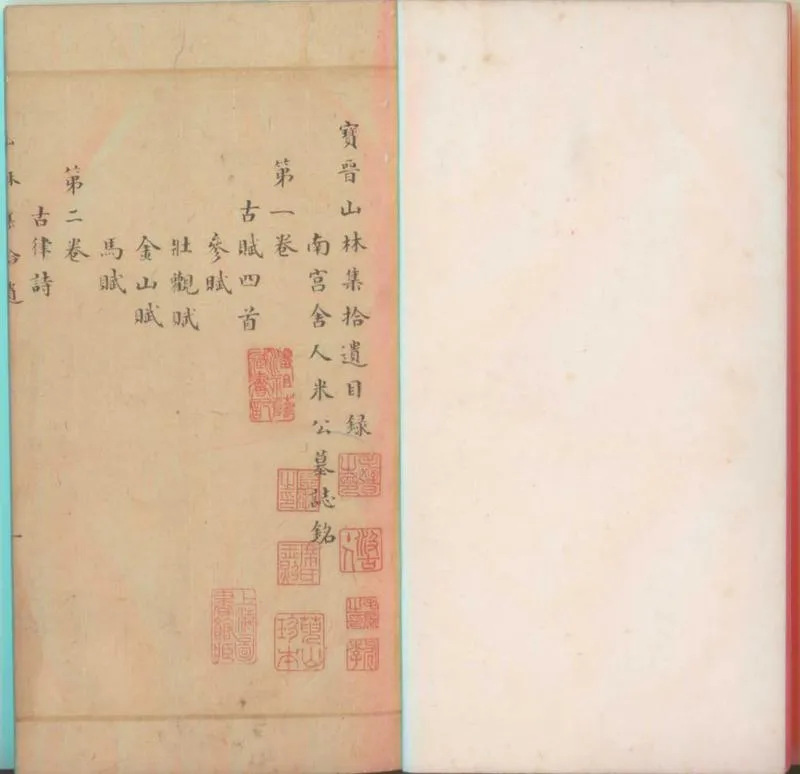 寶晉山林集拾遺目録
南宮舍人米公墓誌銘
第一卷
古賦四首
參賦
壯觀賦
金山賦
馬賦
第二卷
古律詩
一